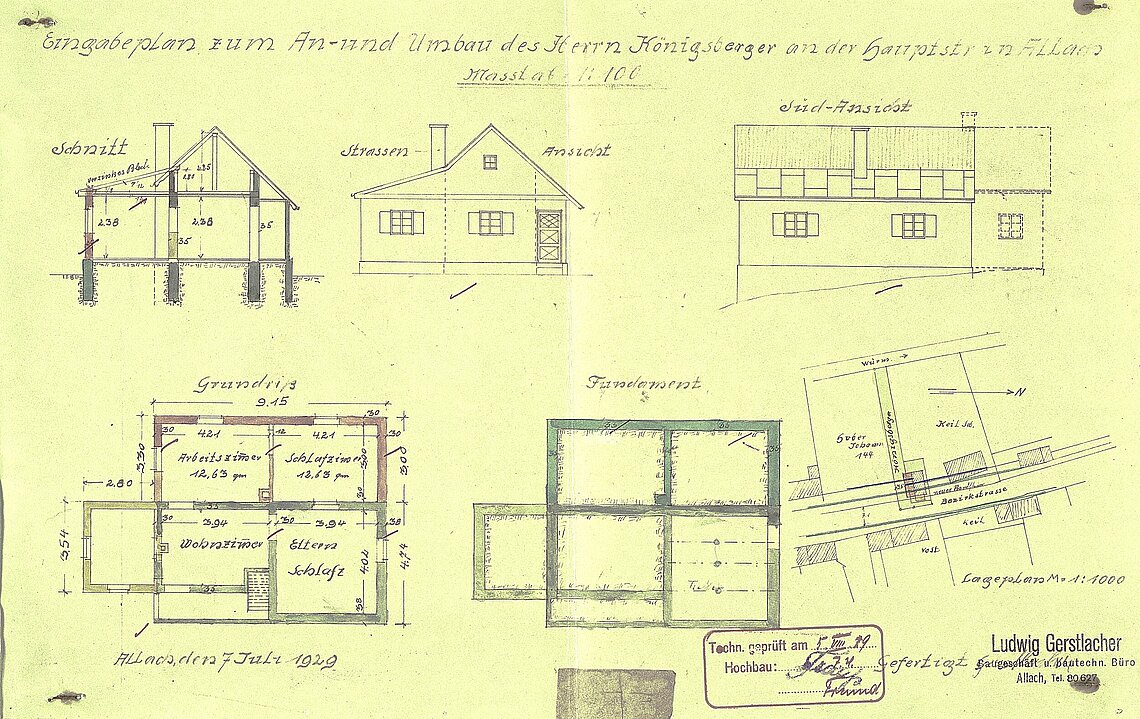 Eingabeplan zum An-und Umbau des Herrn Königsberger an der Hauptstr in Allach
Masstab 1:100
Schnitt
verzinktes Blech
2.38
2.38
35
35
Strassen - Ansicht
Süd-Ansicht
Grundriß
9.15
30
30
4.21
12
4.21
30
3.30
Arbeitszimer
12,63 qm
Schlafzimer
12,63 qm
3.00
3.00
2.80
30
3.94
30
3.94
38
3.54
Wohnzimer
Eltern
Schlafz
4.02
4.74
38
Fundament
Würm
N
Huber
Johann
144
Keil Jd.
Bezirkstrasse
Keil
Vost
Lageplan M= 1:1000
Allach, den 7 Juli 1929
Techn. geprüft am 5. VIII 29.
Hochbau:
Gefertigt
Ludwig Gerstlacher
Baugeschäft u. bautechn. Büro
Allach, Tel. 80627